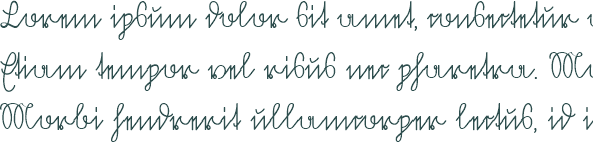 Lorem ipsum dolor sit amet, consectetur
Etiam tempor vel risus nec pharetra.
Morbi hendrerit ullamcorper lectus, id i